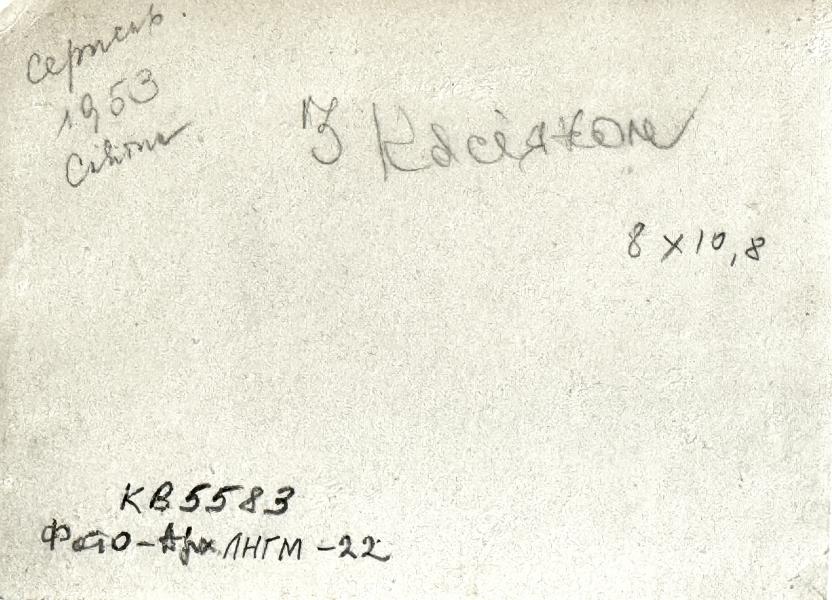 серпень.
1953
З Касіяном
8 х 10,8
КВ 5583
Фото-Арх ЛНГМ -22